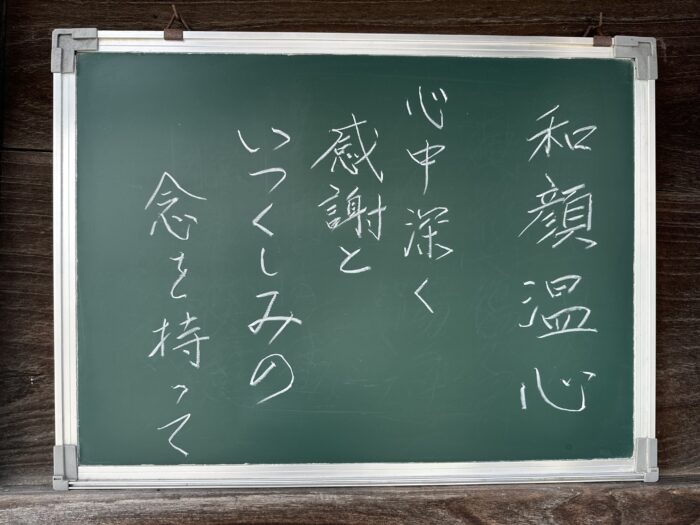 和顔温心
心中深く
感謝と
いつくしみの
念を持って